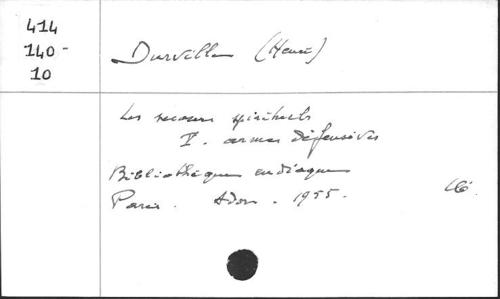 414
140-
10
Durville (Henri)
Les secours spirituels
V. armes défensives
Bibliothèque eudiaque
Paris. 1955.